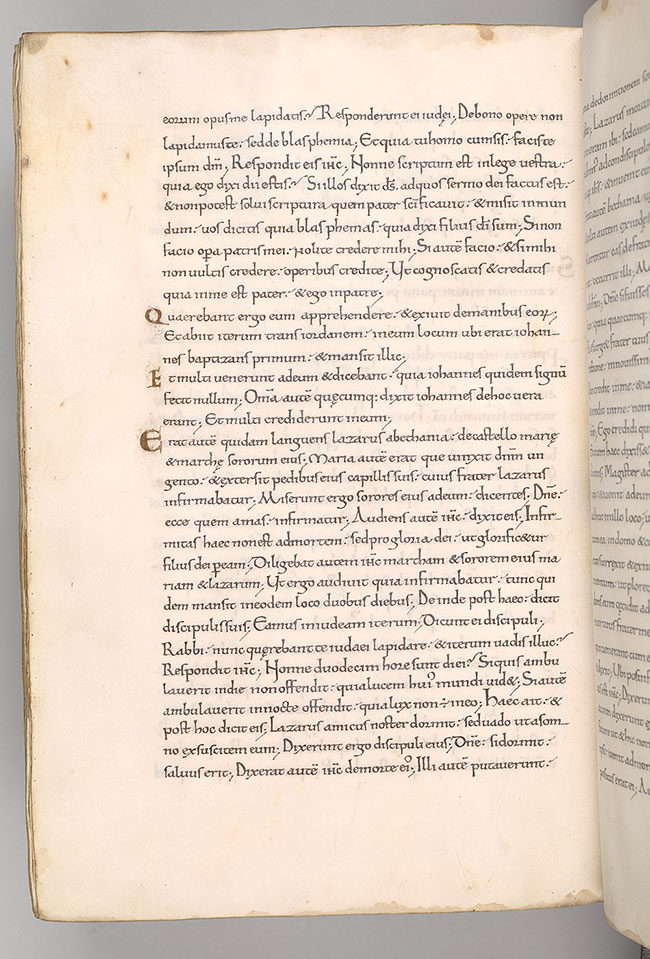 eorum opus me lapidatis; Responderunt ei iudei; De bono opere non
lapidamus te· sed de blasphemia; Et quia tu homo cum sis· facis te
ipsum dm̄; Respondit eis ihc̄; Nonne scriptum est in lege vestra·
quia ego dixi dii estis; Si illos dixit ds̄· ad quos sermo dei factus est·
& non potest solui scriptura· quem pater sc̄ificauit· & misit in mun
dum· uos dicitis quia blasphemas· quia dixi filius dī sum; Si non
facio opa patris mei· nolite credere mihi; Si autē facio· & si mihi
non uultis credere· operibus credite; Ut cognoscatis & credatis
quia in me est pater· & ego in patre;
Quaerebant ergo eum apprehendere· & exiuit de manibus eorꝝ;
Et abiit iterum trans iordanem· in eum locum ubi erat iohan-
nes baptizans primum· & mansit illic;
Et multi venerunt ad eum & dicebant· quia iohannes quidem signū
fecit nullum; Omīa autē quęcumq; dixit iohannes de hoc uera
erant; Et multi crediderunt in eum;
Erat autē quidam languens lazarus a bethania· de castello marię
& marthę sororum eius; Maria autē erat que unxit dnm̄ un
gento· & extersit pedibus eius capillis suis· cuius frater lazarus
infirmabatur; Miserunt ergo sorores eius ad eum· dicentes; Dn̄e·
ecce quem amas· infirmatur; Audiens autē ihc̄· dixit eis; Infir-
mitas haec non est ad mortem· sed pro gloria dei· ut glorific&ur
filius dei p eam; Diligebat autem ihc̄ martham & sororem eius ma
riam & lazarum; Ut ergo audiuit quia infirmabatur· tunc qui
dem mansit in eodem loco duobus diebus; Deinde post haec· dicit
discipulis suis; Eamus in iudeam iterum; Dicunt ei discipuli;
Rabbi· nunc quęrebant te iudaei lapidare· & iterum uadis illuc;
Respondit ihc̄; Nonne duodecim hore sunt diei; Si quis ambu
lauerit in die non offendit· quia lucem hui' mundi uid&; Si autē
ambulauerit in nocte offendit· quia lux non ÷ in eo; Haec ait· &
post hoc dicit eis; Lazarus amicus noster dormit· sed uado ut a som-
no exsuscitem eum; Dixerunt ergo discipuli eius; Dn̄e· si dormit·
saluus erit; Dixerat autē ihc̄ de morte ei'; Illi autē putauerunt·